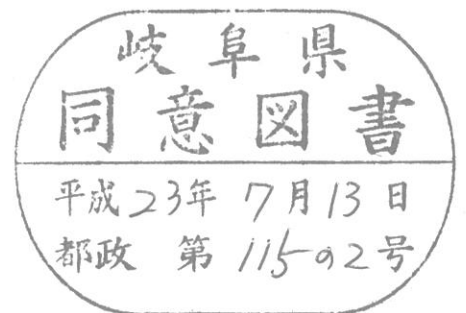 岐阜県
同意図書
平成23年 7月13日
都政 第 115の2号